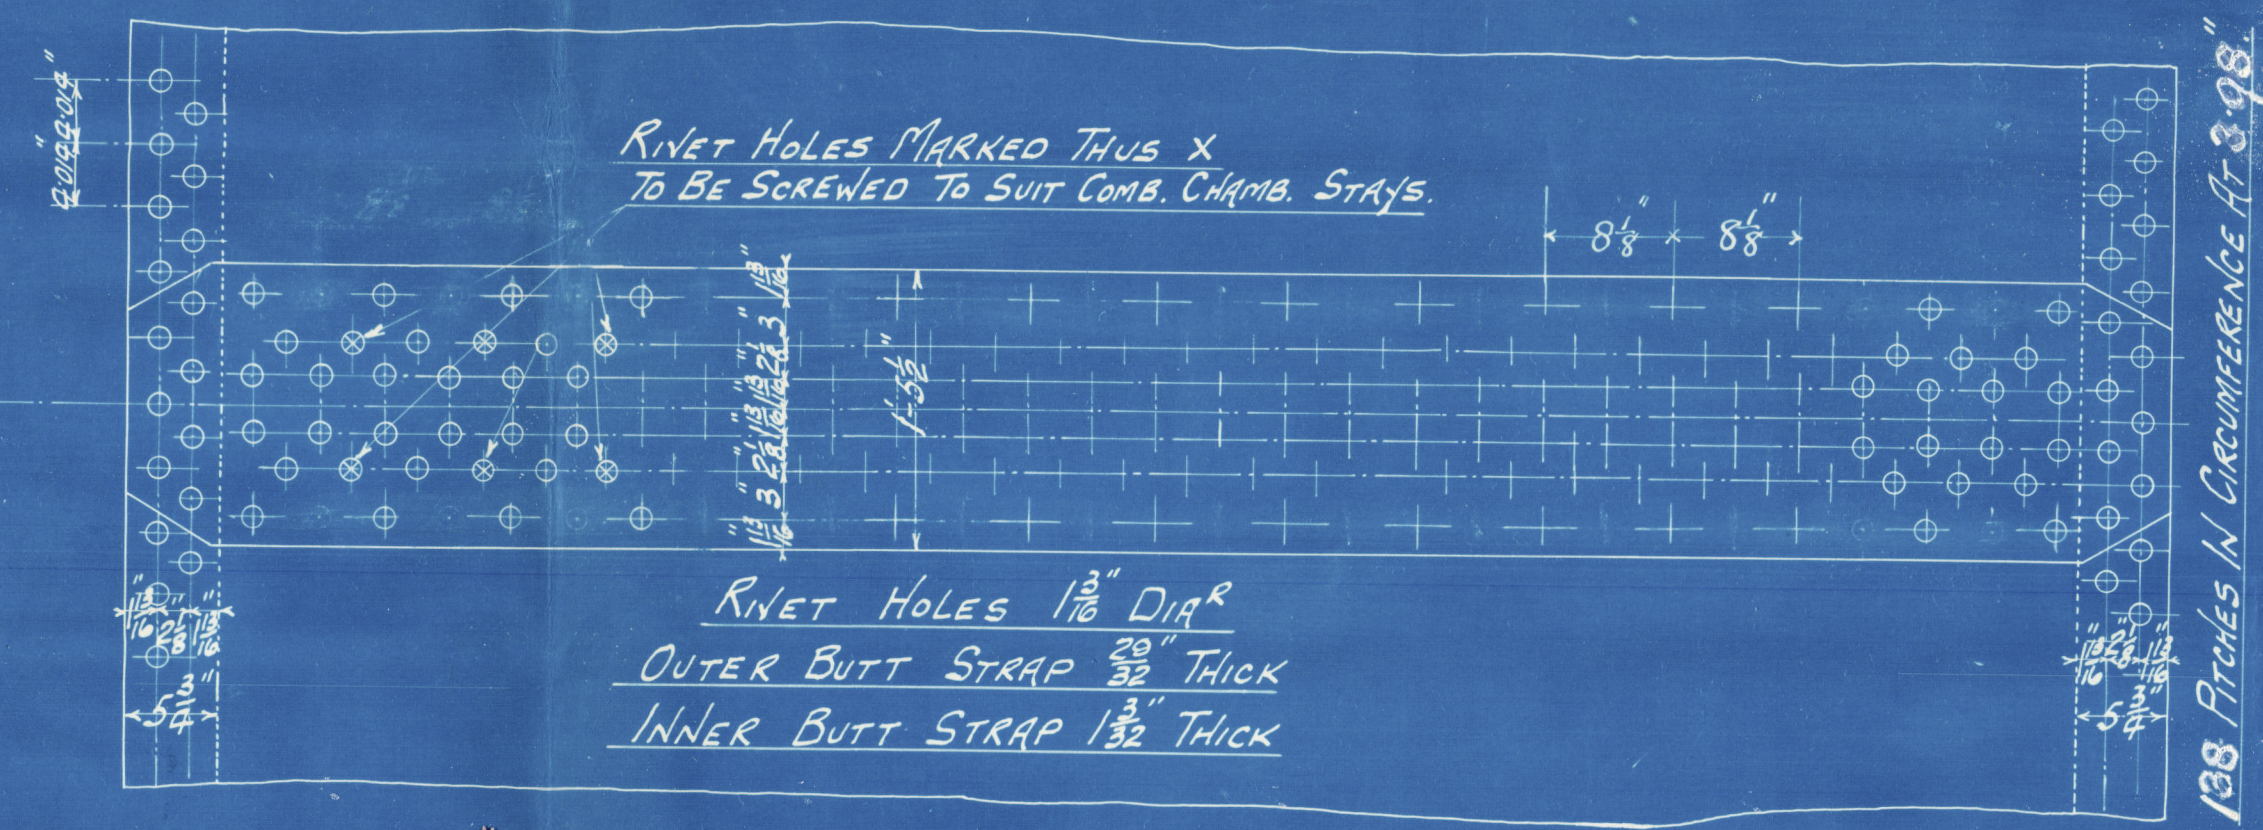 4.014" 4.014"
RIVET HOLES MARKED THUS X
TO BE SCREWED TO SUIT COMB. CHAMB. STAYS.
8 1/8" 8 1/8"
1 13/16" 3 2 1/8" 1 13/16" 1 13/16" 2 1/8" 3" 1 13/16"
1'-5 1/2"
RIVET HOLES 1 3/16" DIAR
OUTER BUTT STRAP 29/32" THICK
INNER BUTT STRAP 1 3/32" THICK
1 13/16" 2 1/8" 1 13/16"
5 3/4"
1 13/16" 2 1/8" 1 13/16"
5 3/4"
138 PITCHES IN CIRCUMFERENCE AT 3.98"